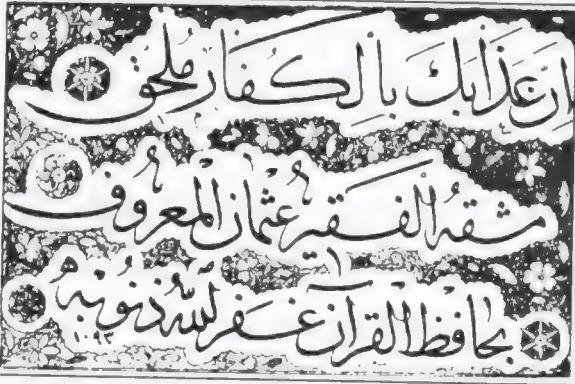 اِنَّ عَذَابَكَ بِالْكُفَّارِ مُلْحِقٌ
مشقه الفقير عثمان المعروف
بحافظ القرآن غفر الله ذنوبه ١٠٩٣